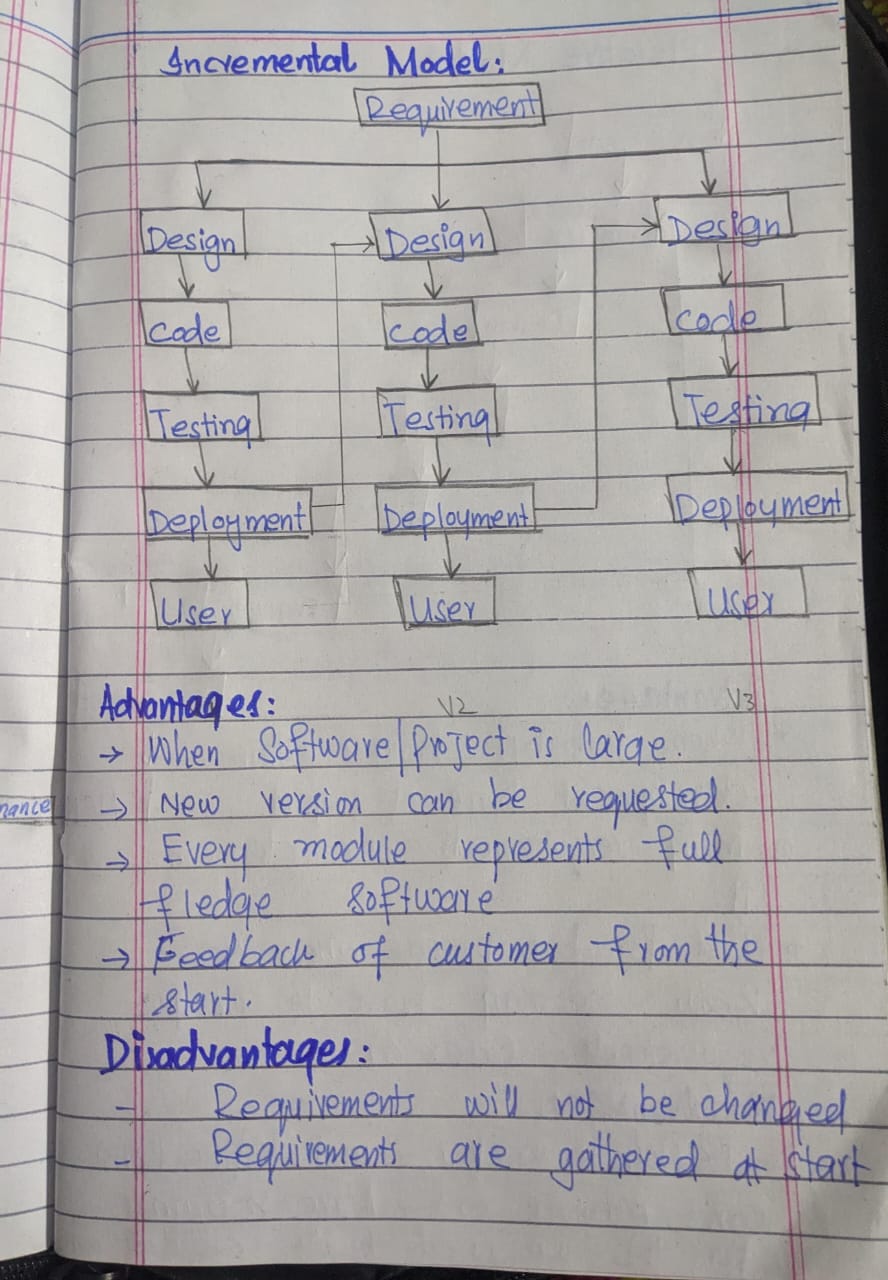 Incremental Model:
Requirement
Design Design Design
Code Code Code
Testing Testing Testing
Deployment Deployment Deployment
User User User
V2 V3
Advantages:
→ When Software/Project is large.
nance
→ New version can be requested.
→ Every module represents full
fledge software
→ Feedback of customer from the
start.
Disadvantages:
- Requirements will not be changed
- Requirements are gathered at start